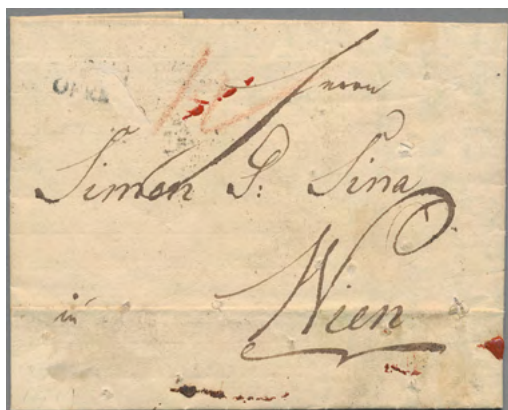 OFEN
12
Herrn
Simon G: Sina
in Wien